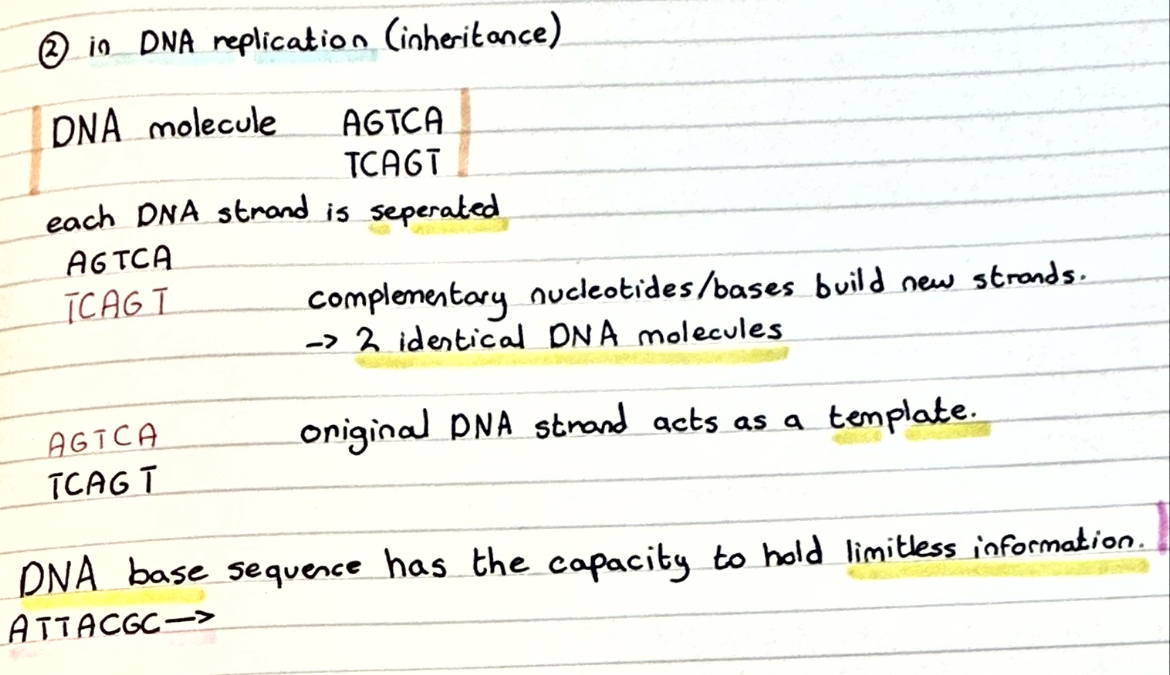 ② in DNA replication (inheritance)
DNA molecule AGTCA
TCAGT
each DNA strand is seperated
AGTCA
TCAGT complementary nucleotides/bases build new strands.
-> 2 identical DNA molecules
AGTCA original DNA strand acts as a template.
TCAGT
DNA base sequence has the capacity to hold limitless information.
ATTACGC->